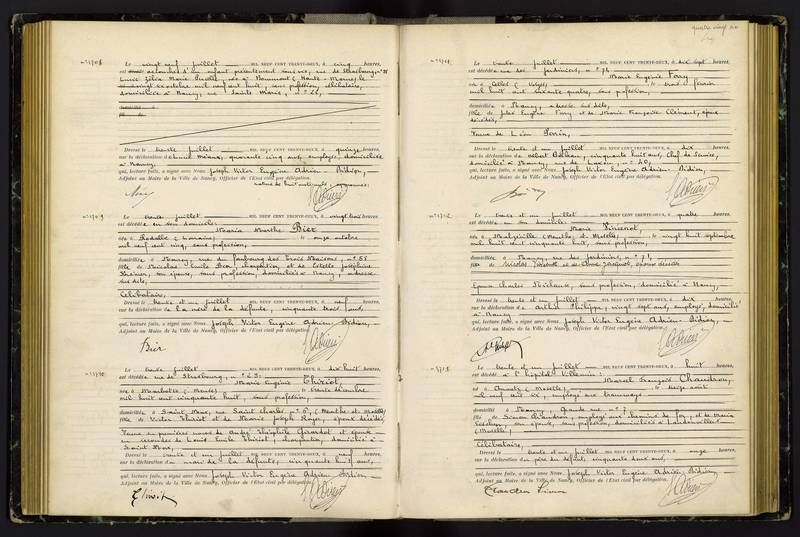 N° 1708
Le vingt neuf juillet MIL NEUF CENT TRENTE-DEUX, à cinq heures,
est accouchée d'un enfant présentement sans vie, rue de Strasbourg, n°
domiciliée à Nancy, rue Sainte Marie, n°
Dressé le trente juillet MIL NEUF CENT TRENTE-DEUX, à quinze heures,
sur la déclaration de quarante cinq ans, employée, domiciliée
à Nancy
qui, lecture faite, a signé avec Nous Joseph Victor Eugène Adrien Bidien,
Adjoint au Maire de la Ville de Nancy, Officier de l'État civil par délégation.
N° 1709
Le trente juillet MIL NEUF CENT TRENTE-DEUX, à vingt trois heures,
est décédée en son domicile
Maria Marthe Bier
née à Rodalbe (Lorraine) le onze octobre
mil neuf cent cinq, sans profession,
domiciliée à Nancy, rue du Faubourg des Trois Maisons, n° 58
fille de Nicolas Emile Bier, charpentier et de Estelle Joséphine
son épouse, sans profession, domiciliés à Nancy, adresse
sus dite,
Célibataire,
Dressé le trente et un juillet MIL NEUF CENT TRENTE-DEUX, à neuf heures,
sur la déclaration de la mère de la défunte, cinquante trois ans,
qui, lecture faite, a signé avec Nous Joseph Victor Eugène Adrien Bidien,
Adjoint au Maire de la Ville de Nancy, Officier de l'État civil par délégation.
Bier
N° 1710
Le trente juillet MIL NEUF CENT TRENTE-DEUX, à dix huit heures,
est décédée rue de Strasbourg, n°
Marie Eugénie Thiriot
née à (Meuse) le trente décembre
mil huit cent cinquante huit, sans profession,
domiciliée à Saint Max, rue Saint Charles n° 6, (Meurthe et Moselle)
fille de Victor Thiriot et de Marie Joseph Royer, époux décédés,
Veuve en premières noces de André Théophile Girardot et épouse
en secondes de Louis Emile Thiriot, charpentier, domicilié à
Saint Max,
Dressé le trente et un juillet MIL NEUF CENT TRENTE-DEUX, à neuf heures,
sur la déclaration du mari de la défunte, cinquante huit ans,
qui, lecture faite, a signé avec Nous Joseph Victor Eugène Adrien Bidien
Adjoint au Maire de la Ville de Nancy, Officier de l'État civil par délégation.
quatre vingt dix
N° 1711
Le trente juillet MIL NEUF CENT TRENTE-DEUX, à dix sept heures,
est décédée rue des Jardiniers, n° 74
Marie Eugénie Ferry
née à Celles (Vosges) le trois février
mil huit cent soixante quatre, sans profession,
domiciliée à Nancy, adresse sus dite,
fille de Jules Eugène Ferry et de Marie Françoise Clément, époux
décédés,
Veuve de Léon Perrin,
Dressé le trente et un juillet MIL NEUF CENT TRENTE-DEUX, à dix heures,
sur la déclaration de cinquante huit ans, Chef de Service,
domicilié à Nancy, rue de Laxou, n° 40,
qui, lecture faite, a signé avec Nous Joseph Victor Eugène Adrien Bidien,
Adjoint au Maire de la Ville de Nancy, Officier de l'État civil par délégation.
N° 1712
Le trente et un juillet MIL NEUF CENT TRENTE-DEUX, à quatre heures,
est décédée en son domicile
Marie Vincenot,
née à Malzéville (Meurthe et Moselle) le vingt septembre
mil huit cent cinquante huit, sans profession,
domiciliée à Nancy, rue des Jardiniers, n°
fille de Nicolas Vincenot et de Anne Jacquot, époux décédés
Epouse Charles sans profession, domicilié à Nancy,
Dressé le trente et un juillet MIL NEUF CENT TRENTE-DEUX, à dix heures,
sur la déclaration de Arthur Philippe, vingt sept ans, employé, domicilié
à Nancy
qui, lecture faite, a signé avec Nous Joseph Victor Eugène Adrien Bidien,
Adjoint au Maire de la Ville de Nancy, Officier de l'État civil par délégation.
Le trente et un juillet MIL NEUF CENT TRENTE-DEUX, à huit heures,
est décédé à l'hôpital Villemin
Marcel François Chaudron,
né à (Moselle) le treize août
mil neuf cent six, employé aux tramways
domicilié à Nancy, Grande rue n° 7
fils de Simon Chaudron, employé aux chemins de fer, et de Maria
son épouse, sans profession, domiciliés à
(Moselle)
Célibataire,
Dressé le trente et un juillet MIL NEUF CENT TRENTE-DEUX, à onze heures,
sur la déclaration du père du défunt, cinquante deux ans,
qui, lecture faite, a signé avec Nous Joseph Victor Eugène Adrien Bidien,
Adjoint au Maire de la Ville de Nancy, Officier de l'État civil par délégation.
Chaudron Simon